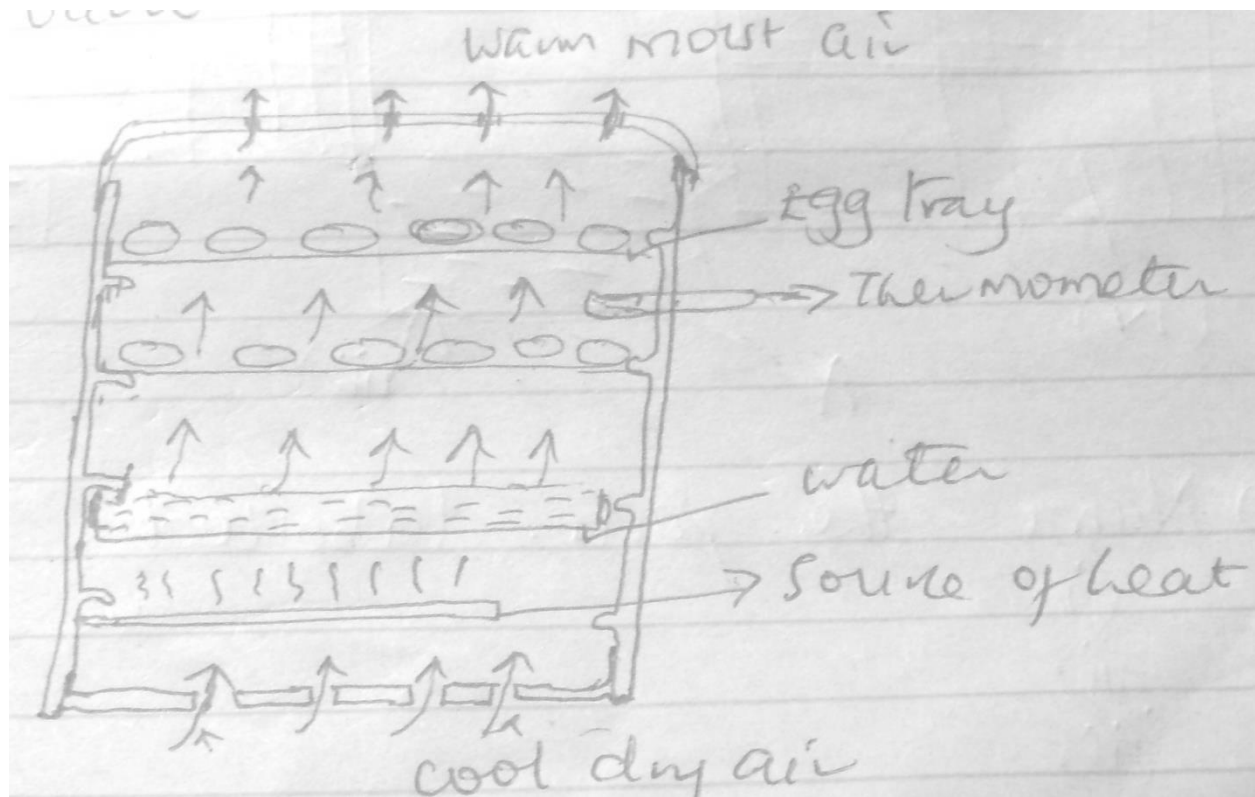 Warm moist air
Egg Tray
Thermometer
water
Source of heat
cool dry air